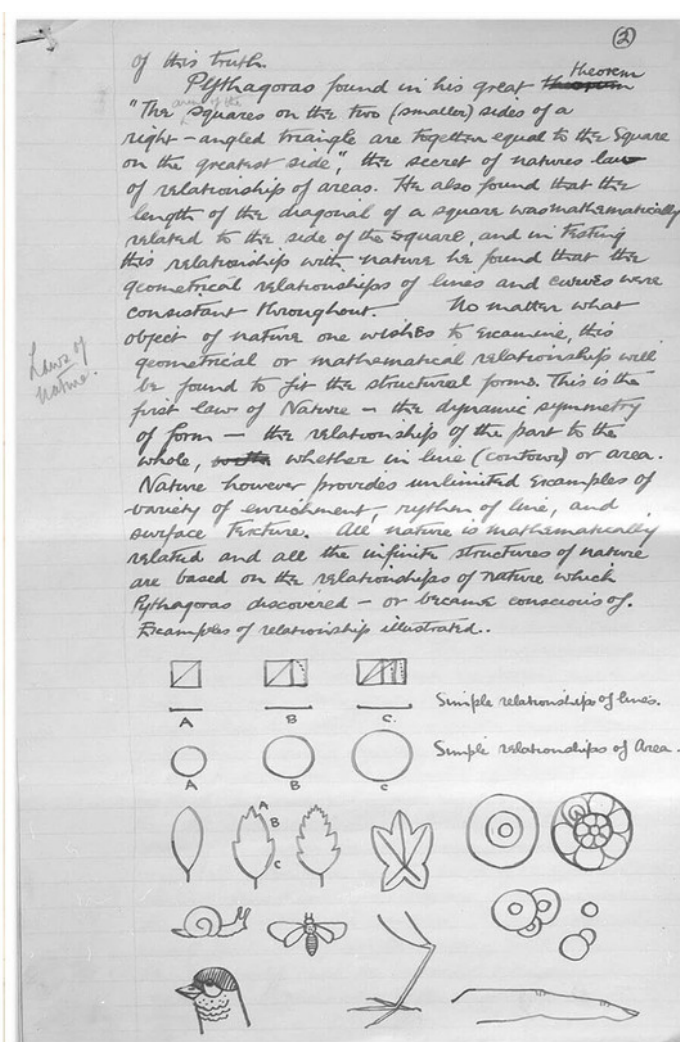 2
of this truth.
Pythagoras found in his great theorem
"The area of the squares on the two (smaller) sides of a
right-angled triangle are together equal to the Square
on the greatest side", the secret of natures law
of relationship of areas. He also found that the
length of the diagonal of a square was mathematically
related to the side of the square, and in testing
this relationship with nature he found that the
geometrical relationships of lines and curves were
consistant throughout. No matter what
object of nature one wishes to examine, this
geometrical or mathematical relationship will
be found to fit the structural forms. This is the
first law of Nature – the dynamic symmetry
of form – the relationship of the part to the
whole, whether in line (contour) or area.
Nature however provides unlimited examples of
variety of enrichment, rythm of line, and
surface texture. All nature is mathematically
related and all the infinite structures of nature
are based on the relationships of nature which
Pythagoras discovered – or became conscious of.
Examples of relationship illustrated.
Laws of
Nature.
A B C.
Simple relationships of lines.
A B C
Simple relationships of Area.
A
B
C